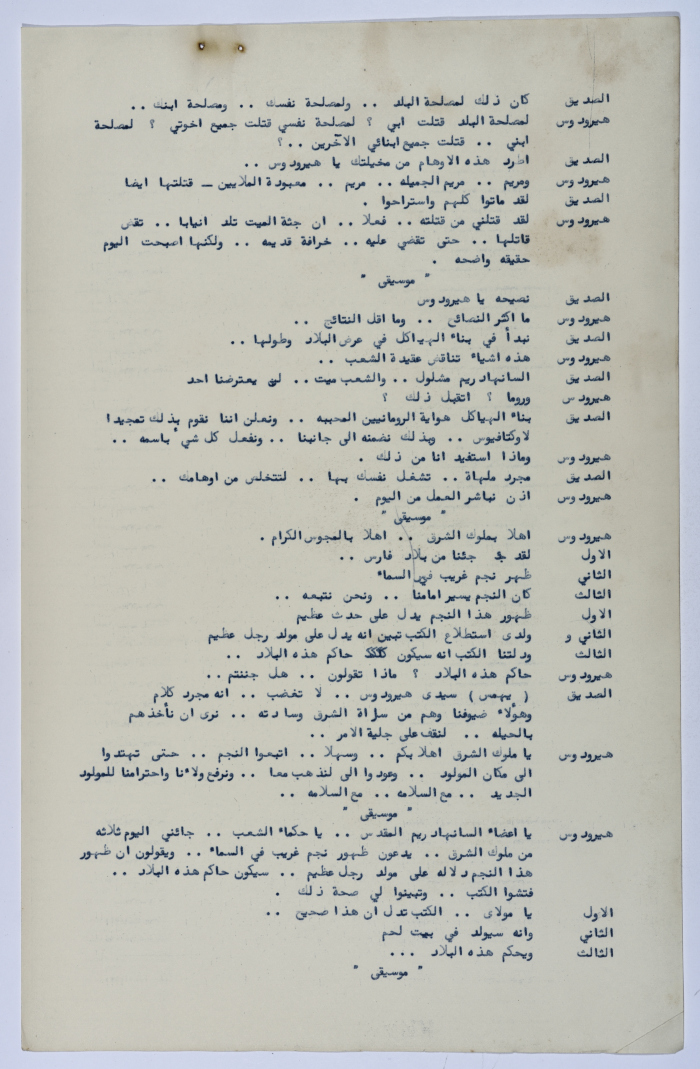 الصديق كان ذلك لمصلحة البلد .. ولمصلحة نفسك .. ومصلحة ابنك ..
هيرودوس لمصلحة البلد قتلت ابي ؟ لمصلحة نفسي قتلت جميع اخوتي ؟ لمصلحة
ابني .. قتلت جميع ابنائي الآخرين ..؟
الصديق اطرد هذه الاوهام من مخيلتك يا هيرودوس ..
هيرودوس ومريم .. مريم الجميله .. مريم .. معبودة الملايين ــ قتلتها ايضا
الصديق لقد ماتوا كلهم واستراحوا .
هيرودوس لقد قتلني من قتلته .. فعلا .. ان جثة الميت تلد انيابا .. تقض
قاتلها .. حتى تقضي عليه .. خرافة قديمه .. ولكنها اصبحت اليوم
حقيقه واضحه .
" موسيقى "
الصديق نصيحه يا هيرودوس
هيرودوس ما اكثر النصائح .. وما اقل النتائج ..
الصديق نبدأ في بناء الهياكل في عرض البلاد وطولها ..
هيرودوس هذه اشياء تناقض عقيدة الشعب ..
الصديق السانهادريم مشلول .. والشعب ميت .. لن يعترضنا احد
هيرودس وروما ؟ اتقبل ذلك ؟
الصديق بناء الهياكل هواية الرومانيين المحببه .. ونعلن اننا نقوم بذلك تمجيدا
لاوكتافيوس .. وبذلك نضمنه الى جانبنا .. ونفعل كل شيء باسمه ..
هيرودوس وماذا استفيد انا من ذلك .
الصديق مجرد ملهاة .. تشغل نفسك بها .. لتتخلص من اوهامك ..
هيرودوس اذن نباشر العمل من اليوم .
" موسيقى "
هيرودوس اهلا بملوك الشرق .. اهلا بالمجوس الكرام .
الاول لقد جئنا من بلاد فارس ..
الثاني ظهر نجم غريب في السماء
الثالث كان النجم يسير امامنا .. ونحن نتبعه ..
الاول ظهور هذا النجم يدل على حدث عظيم
الثاني و ولدى استطلاع الكتب تبين انه يدل على مولد رجل عظيم
الثالث ودلتنا الكتب انه سيكون حاكم هذه البلاد ..
هيرودوس حاكم هذه البلاد ؟ ماذا تقولون .. هل جننتم ..
الصديق ( يهمس ) سيدى هيرودوس .. لا تغضب .. انه مجرد كلام
وهؤلاء ضيوفنا وهم من سراة الشرق وسادته .. نرى ان نأخذهم
بالحيله .. لنقف على جلية الامر ..
هيرودوس يا ملوك الشرق اهلا بكم .. وسهلا .. اتبعوا النجم .. حتى تهتدوا
الى مكان المولود .. وعودوا الى لنذهب معا .. ونرفع ولاءنا واحترامنا للمولود
الجديد .. مع السلامه .. مع السلامه ..
" موسيقى "
هيرودوس يا اعضاء السانهادريم المقدس .. يا حكماء الشعب .. جائني اليوم ثلاثه
من ملوك الشرق .. يدعون ظهور نجم غريب في السماء .. ويقولون ان ظهور
هذا النجم دلاله على مولد رجل عظيم .. سيكون حاكم هذه البلاد ..
فتشوا الكتب .. وتبينوا لي صحة ذلك .
الاول يا مولاى .. الكتب تدل ان هذا صحيح ..
الثاني وانه سيولد في بيت لحم
الثالث ويحكم هذه البلاد ...
" موسيقى "